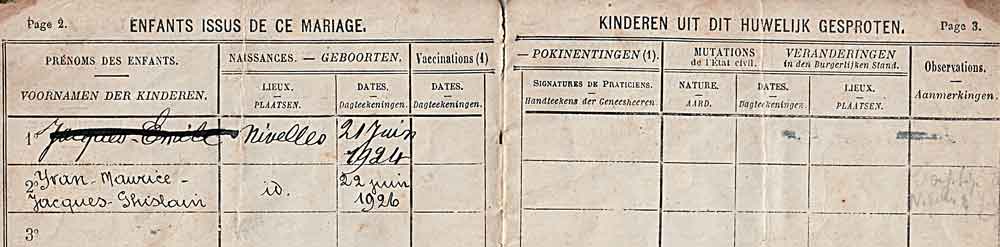 Page 2. ENFANTS ISSUS DE CE MARIAGE.
PRÉNOMS DES ENFANTS.
VOORNAMEN DER KINDEREN.
NAISSANCES. — GEBOORTEN.
LIEUX.
PLAATSEN.
DATES.
Dagteekeningen.
Vaccinations (1)
DATES.
Dagteekeningen.
1° Jacques-Emile Nivelles 21 Juin
1924
2° Yvan-Maurice- id. 22 juin
Jacques-Ghislain 1926
3°
KINDEREN UIT DIT HUWELIJK GESPROTEN. Page 3.
— POKINENTINGEN (1).
SIGNATURES DE PRATICIENS.
Handteekens der Geneesheeren.
MUTATIONS VERANDERINGEN
de l'État civil. in den Burgerlijken Stand.
NATURE.
AARD.
DATES.
Dagteekeningen.
LIEUX.
PLAATSEN.
Observations.
Aanmerkingen.